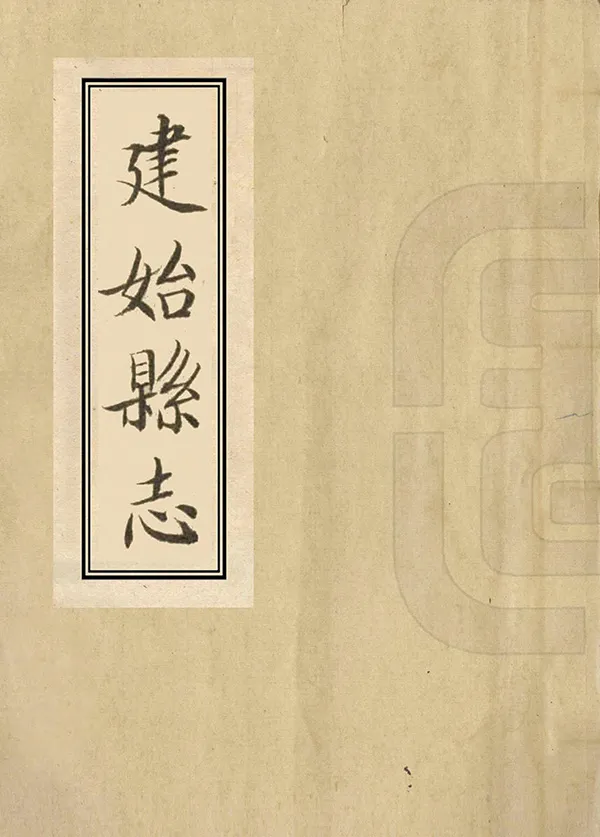 建始縣志